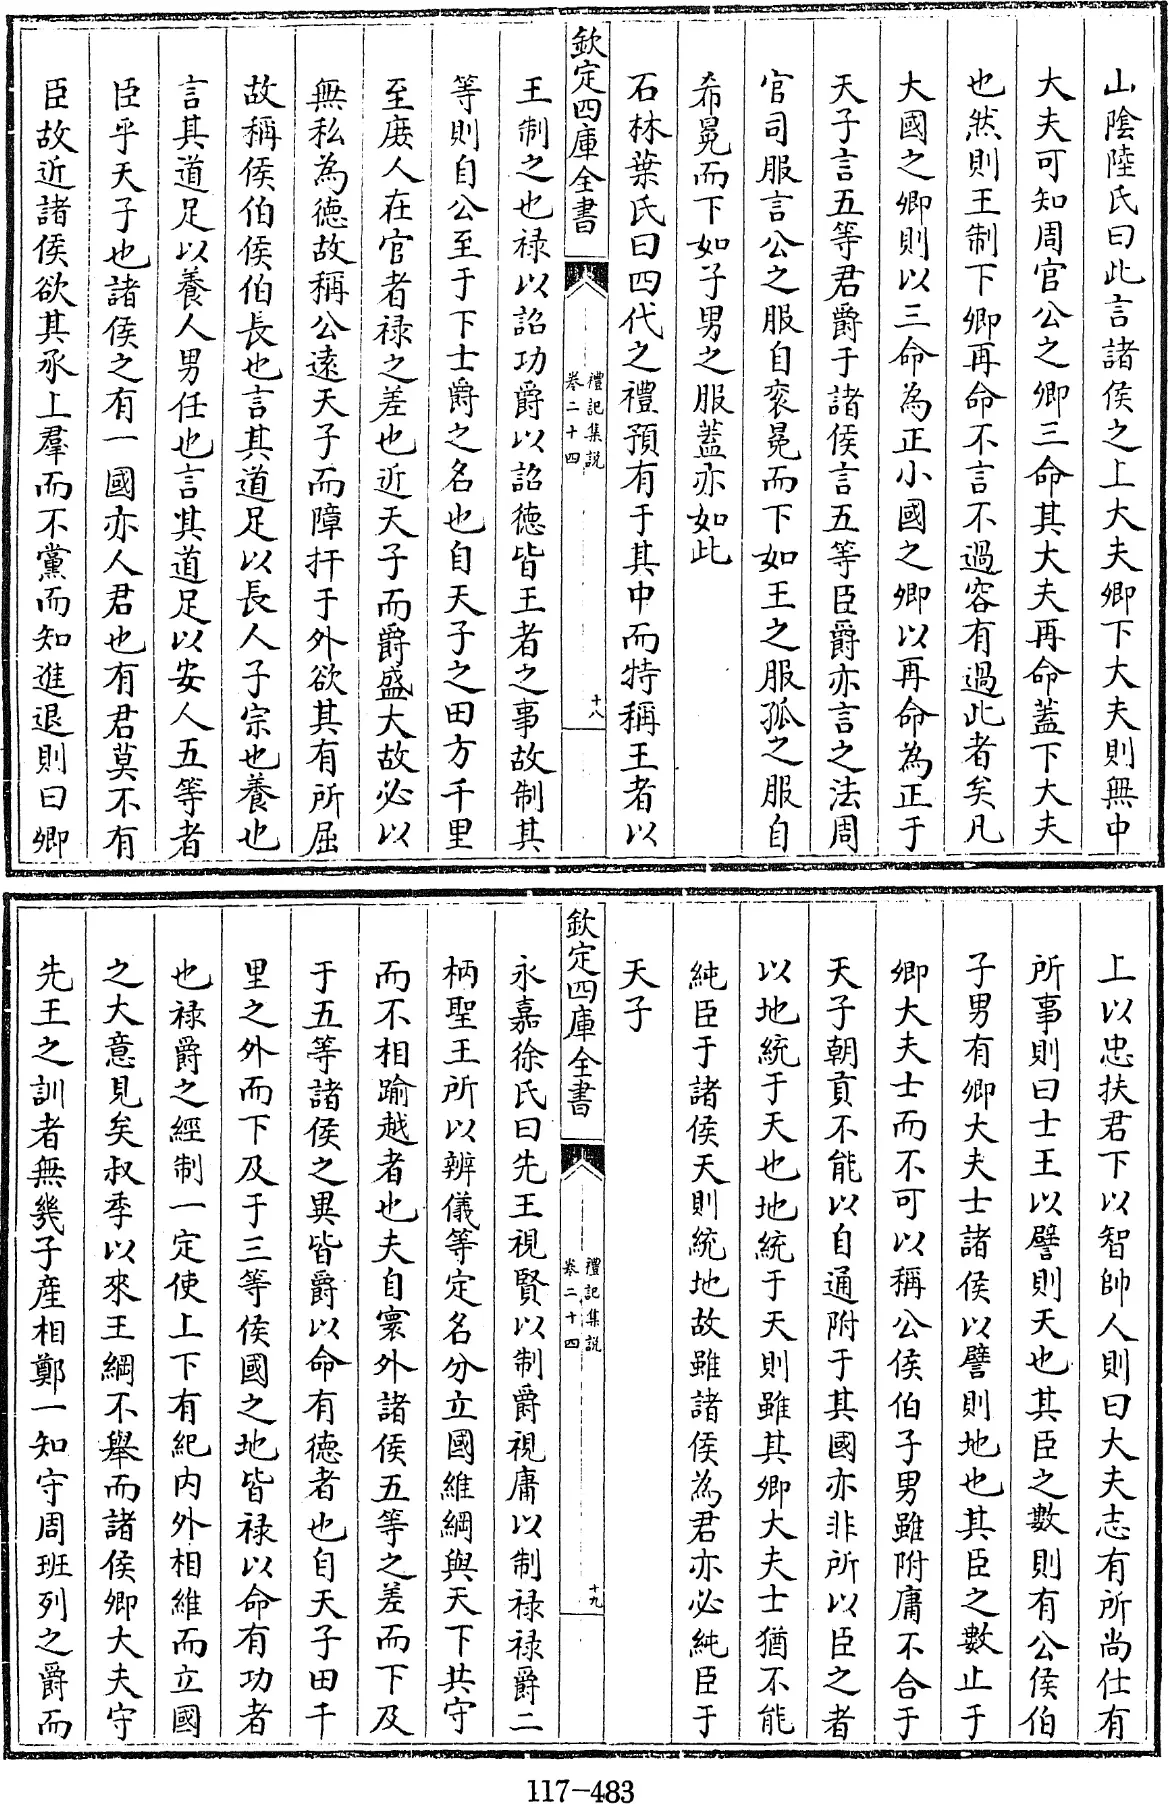 山隂陸氏曰此言諸侯之上大夫卿下大夫則無中
大夫可知周官公之卿三命其大夫再命蓋下大夫
也然則王制下卿再命不言不過容有過此者矣凡
大國之卿則以三命為正小國之卿以再命為正于
天子言五等君爵于諸侯言五等臣爵亦言之法周
官司服言公之服自衮冕而下如王之服孤之服自
希冕而下如子男之服蓋亦如此
石林葉氏曰四代之禮預有于其中而特稱王者以
欽定四庫全書
禮記集説
卷二十四
十八
王制之也禄以詔功爵以詔德皆王者之事故制其
等則自公至于下士爵之名也自天子之田方千里
至庻人在官者禄之差也近天子而爵盛大故必以
無私為德故稱公逺天子而障扞于外欲其有所屈
故稱侯伯侯伯長也言其道足以長人子宗也養也
言其道足以養人男任也言其道足以安人五等者
臣乎天子也諸侯之有一國亦人君也有君莫不有
臣故近諸侯欲其承上羣而不黨而知進退則曰卿
上以忠扶君下以智帥人則曰大夫志有所尚仕有
所事則曰士王以譬則天也其臣之數則有公侯伯
子男有卿大夫士諸侯以譬則地也其臣之數止于
卿大夫士而不可以稱公侯伯子男雖附庸不合于
天子朝貢不能以自通附于其國亦非所以臣之者
以地統于天也地統于天則雖其卿大夫士猶不能
純臣于諸侯天則統地故雖諸侯為君亦必純臣于
天子
欽定四庫全書
禮記集説
卷二十四
十九
永嘉徐氏曰先王視賢以制爵視庸以制禄禄爵二
柄聖王所以辨儀等定名分立國維綱與天下共守
而不相踰越者也夫自寰外諸侯五等之差而下及
于五等諸侯之異皆爵以命有德者也自天子田千
里之外而下及于三等侯國之地皆禄以命有功者
也禄爵之經制一定使上下有紀内外相維而立國
之大意見矣叔季以來王綱不舉而諸侯卿大夫守
先王之訓者無幾子産相鄭一知守周班列之爵而
117-483